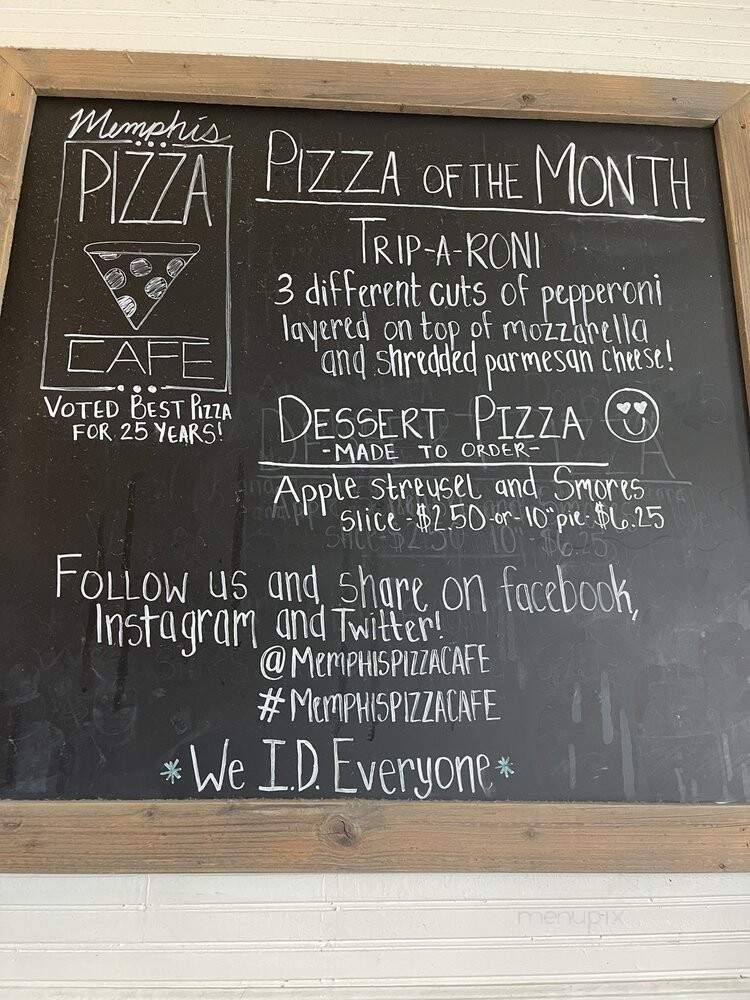 Memphis
PIZZA
CAFE
VOTED BEST PIZZA
FOR 25 YEARS!
PIZZA OF THE MONTH
TRIP-A-RONI
3 different cuts of pepperoni
layered on top of mozzarella
and shredded parmesan cheese!
DESSERT PIZZA
-MADE TO ORDER-
Apple streusel and Smores
slice-$2.50-or-10"pie-$6.25
Slice-$2.50 10"-$6.25
FOLLOW us and share on facebook,
Instagram and Twitter!
@MEMPHISPIZZACAFE
#MEMPHISPIZZACAFE
*We I.D. Everyone*
menupix